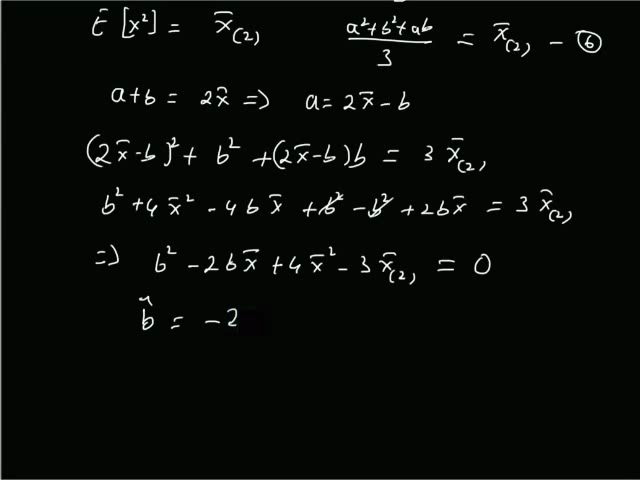 E[x²] = x̄₍₂₎    (a²+b²+ab)/3 = x̄₍₂₎ – ⑥
a+b = 2x̄ => a = 2x̄ – b
(2x̄–b)² + b² + (2x̄–b)b = 3x̄₍₂₎
b² + 4x̄² – 4bx̄ + b² – b² + 2bx̄ = 3x̄₍₂₎
=> b² – 2bx̄ + 4x̄² – 3x̄₍₂₎ = 0
b̂ = –2